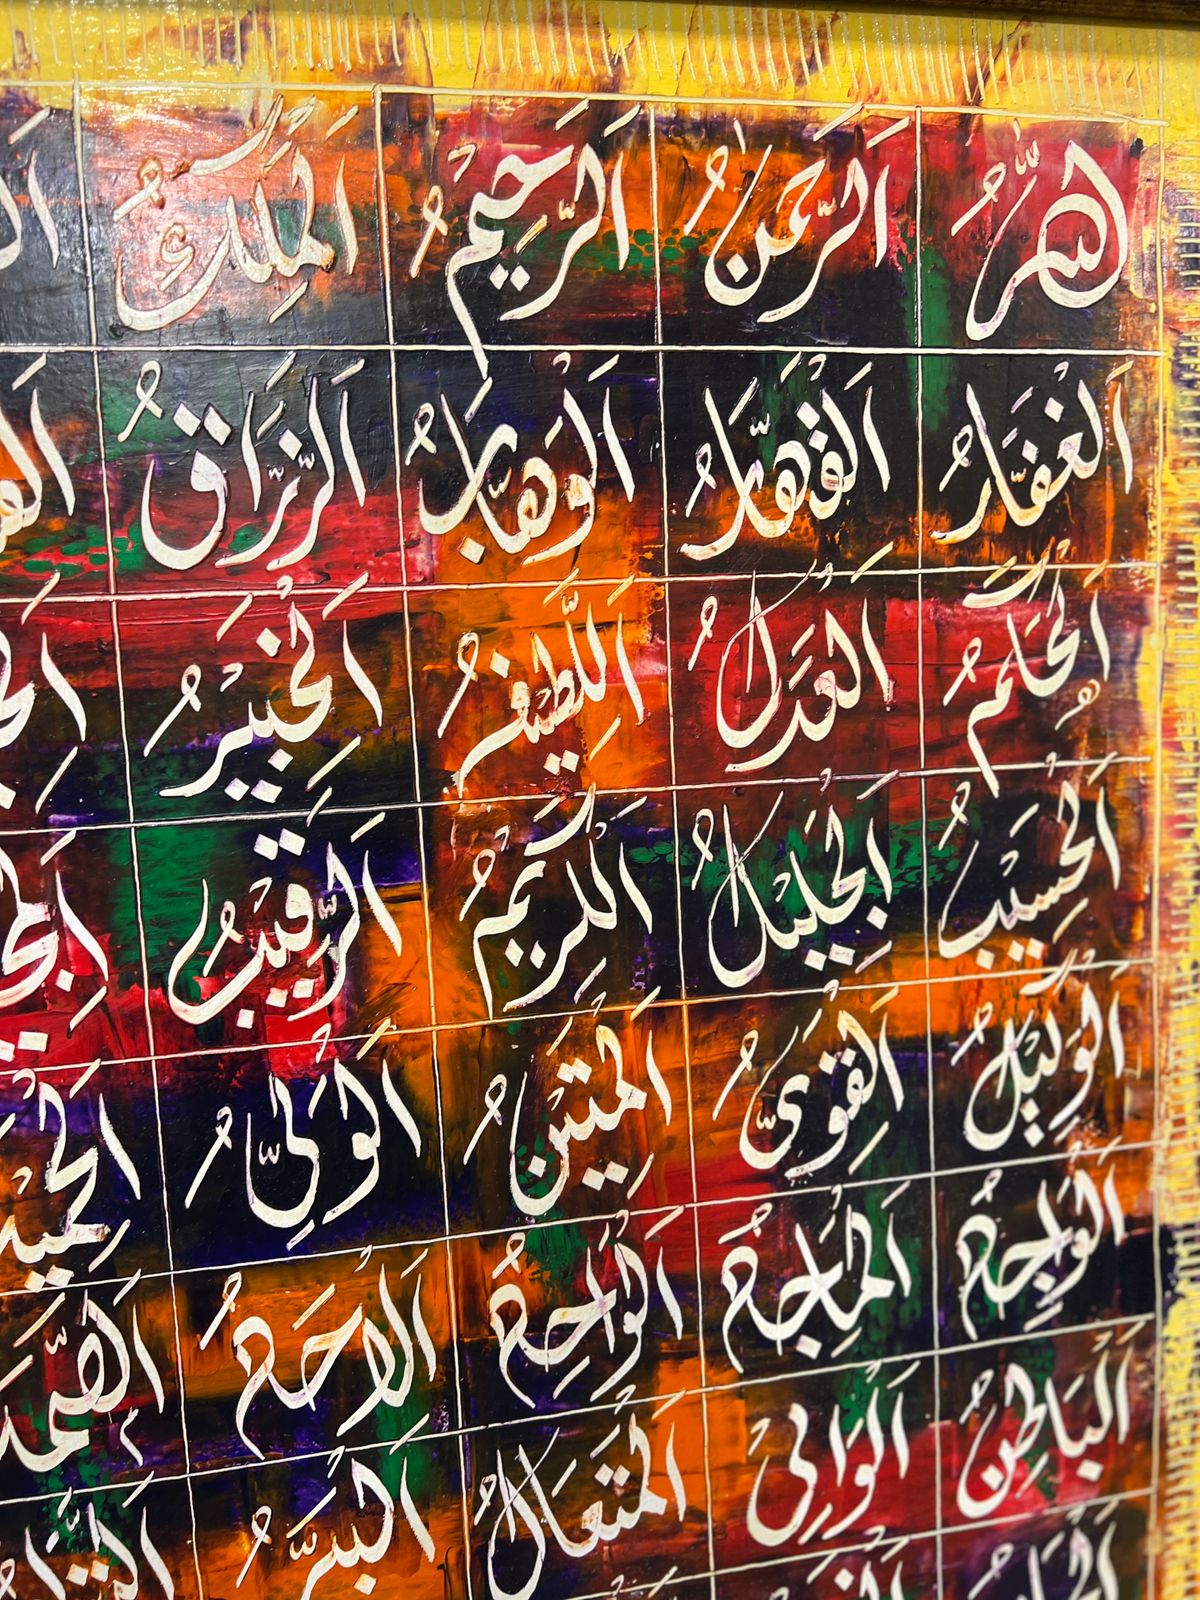 اللهُ الرَّحْمٰنُ الرَّحِيْمُ الْمَلِكُ
الْغَفَّارُ الْقَهَّارُ الْوَهَّابُ الرَّزَّاقُ
الْعَدْلُ اللَّطِيْفُ الْخَبِيْرُ
الْحَسِيْبُ الْجَلِيْلُ الْكَرِيْمُ الرَّقِيْبُ
الْوَكِيْلُ الْقَوِىُّ الْمَتِيْنُ الْوَلِىُّ
الْوَاجِدُ الْمَاجِدُ الْوَاحِدُ الْاَحَدُ الصَّمَدُ
الْبَاطِنُ الْوَالِىُ الْمُتَعَالُ الْبَرُّ